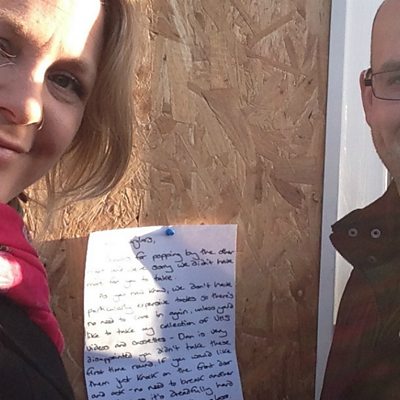 for popping by the other
sorry we didn't have
for you to take.
As you now know, we don't have
particularly expensive tastes so there's
no need to come in again, unless you'd
like to take my collection of VHS
videos and cassettes - Dan is very
disappointed you didn't take these
first time round. If you would like
them just knock on the front door
and ask - no need to break another
it's dreadfully hard